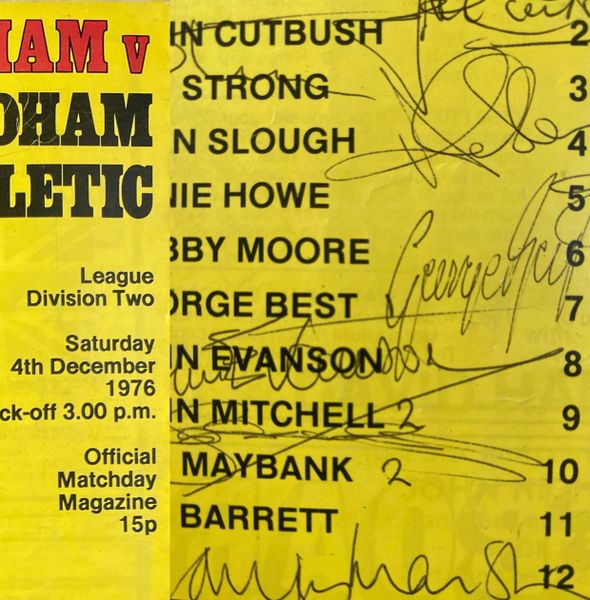 HAM v
DHAM
LETIC
League
Division Two
Saturday
4th December
1976
ck-off 3.00 p.m.
Official
Matchday
Magazine
15p
N CUTBUSH 2
STRONG 3
N SLOUGH 4
NIE HOWE 5
BBY MOORE 6
ORGE BEST 7
N EVANSON 8
N MITCHELL 2 9
MAYBANK 2 10
BARRETT 11
12